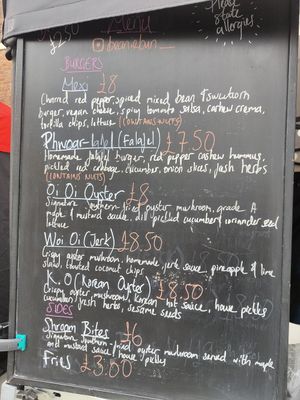 Menu
£2.50
Please
state
allergies
BURGERS
Mexi £8
Charred red pepper, spiced mixed bean & sweetcorn
burger, vegan cheese, spicy tomato salsa, cashew crema,
tortilla chips, lettuce (CONTAINS NUTS)
Phwoar-lafel (Falafel) £7.50
Homemade falafel burger, red pepper cashew hummus,
pickled red cabbage, cucumber, onion slices, fresh herbs
(CONTAINS NUTS)
Oi Oi Oyster £8
Signature southern fried oyster mushroom, grade A
maple & mustard sauce, dill pickled cucumber, coriander seed
lettuce
Woi Oi (Jerk) £8.50
Crispy oyster mushroom, homemade jerk sauce, pineapple & lime
slaw, toasted coconut chips
K.O (Korean Oyster) £8.50
Crispy oyster mushroom, Korean hot sauce, house pickles
cucumber, fresh herbs, sesame seeds
SIDES
Shroom Bites £6
Signature southern-fried oyster mushroom served with maple
and mustard sauce, house pickles
Fries £3.60